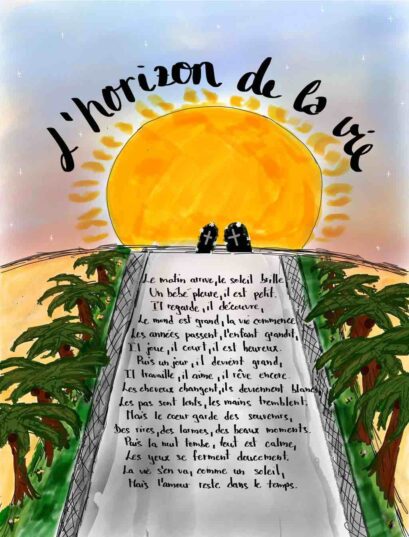 L'horizon de la vie
Le matin arrive, le soleil brille
Un bébé pleure, il est petit.
Il regarde, il découvre,
Le mond est grand, la vie commence.
Les années passent, l'enfant grandit,
Il joue, il court, il est heureux.
Puis un jour, il devient grand,
Il travaille, il aime, il rêve encore.
Les cheveux changent, ils deviennent blancs
Les pas sont lents, les mains tremblent.
Mais le cœur garde des souvenirs,
Des rires, des larmes, des beaux moments.
Puis la nuit tombe, tout est calme,
Les yeux se ferment doucement.
La vie s'en va, comme un soleil,
Mais l'amour reste dans le temps.